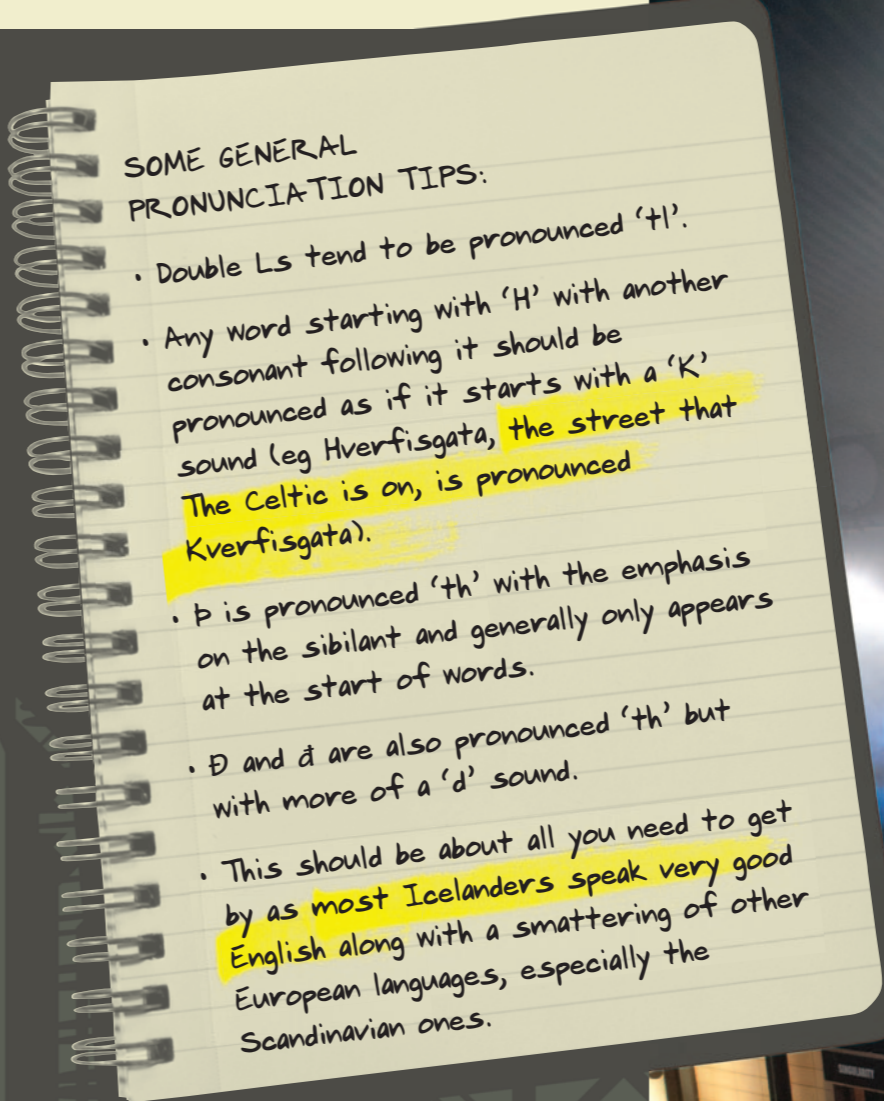 SOME GENERAL
PRONUNCIATION TIPS:
• Double Ls tend to be pronounced ‘tl’.
• Any word starting with ‘H’ with another
consonant following it should be
pronounced as if it starts with a ‘K’
sound (eg Hverfisgata, the street that
The Celtic is on, is pronounced
Kverfisgata).
• Þ is pronounced ‘th’ with the emphasis
on the sibilant and generally only appears
at the start of words.
• Đ and đ are also pronounced ‘th’ but
with more of a ‘d’ sound.
• This should be about all you need to get
by as most Icelanders speak very good
English along with a smattering of other
European languages, especially the
Scandinavian ones.
SINGULARITY